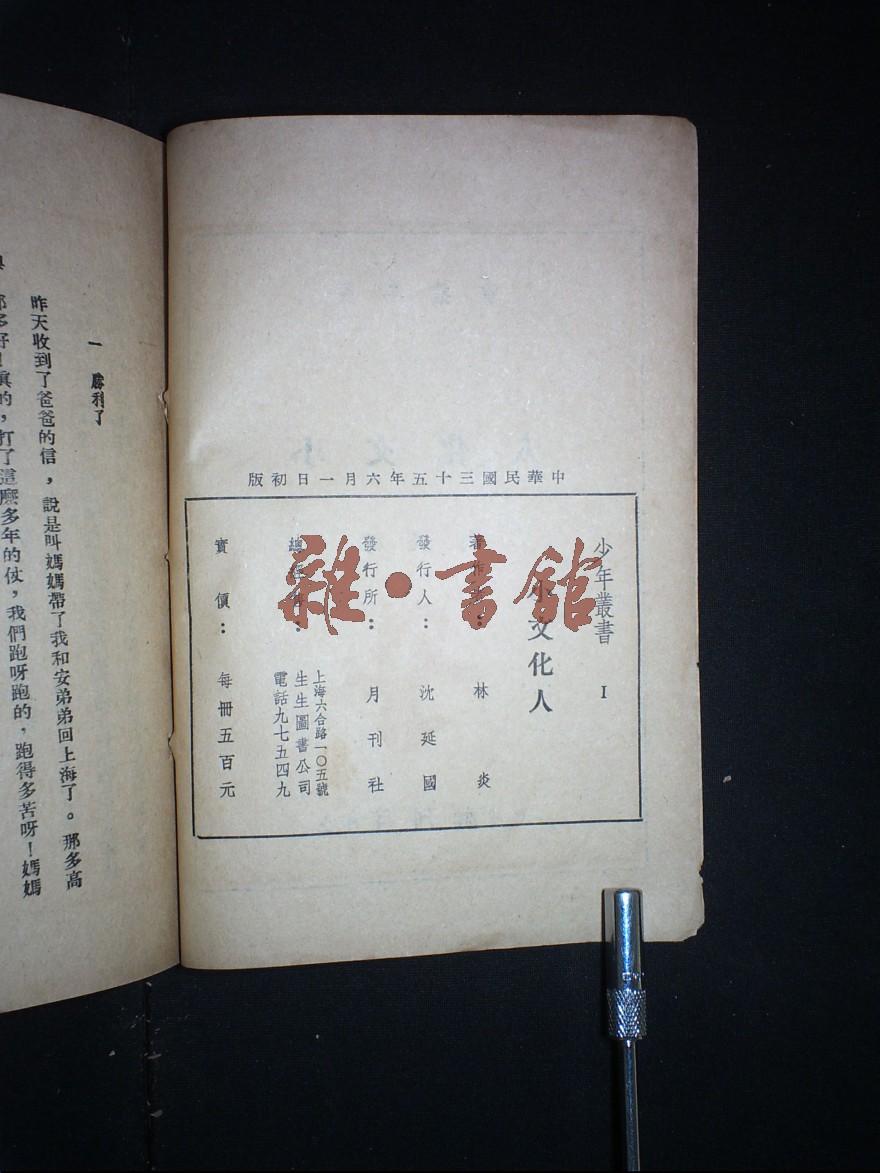 中華民國三十五年六月一日初版
少年叢書 I
小文化人
著作者： 林炎
發行人： 沈延國
發行所： 月刊社
上海六合路一〇五號
生生圖書公司
電話九七五四九
實價： 每冊五百元
雜·書館
一 勝利了
昨天收到了爸爸的信，說是叫媽媽帶了我和安弟弟回上海了。那多高
那多好！真的，打了這麼多年的仗，我們跑呀跑的，跑得多苦呀！媽媽